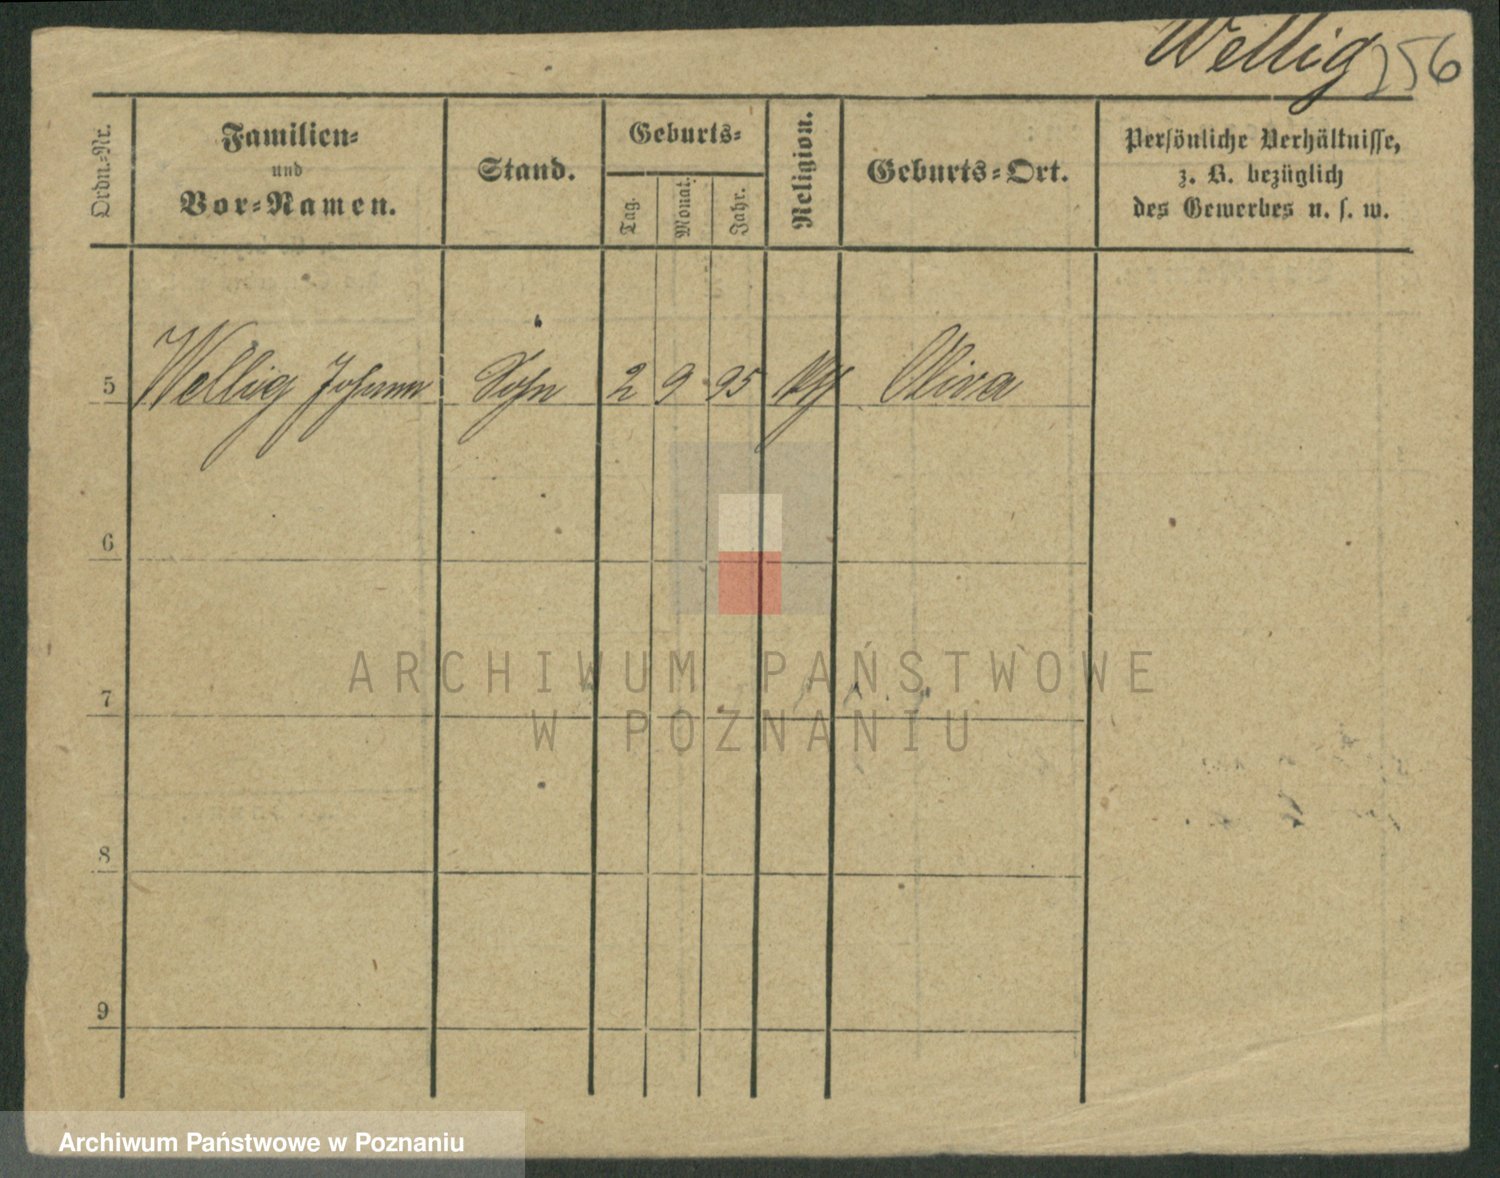 Wellig 256
Ordn.-Nr.
Familien-
und
Vor-Namen.
Stand.
Geburts-
Tag.
Monat.
Jahr.
Religion.
Geburts-Ort.
Persönliche Verhältnisse,
z. B. bezüglich
des Gewerbes u. s. w.
5 Wellig Johann Sohn 2 9 95 Oliva
6
7
8
9
ARCHIWUM PAŃSTWOWE
W POZNANIU
Archiwum Państwowe w Poznaniu